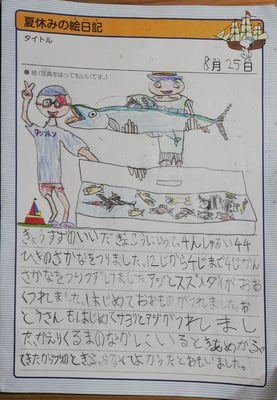 夏休みの絵日記
タイトル
8月25日
●絵(写真をはってもいいです。)
きょうすずのいいだぎょこうにいって、4人しゅるい44
ひきのさかなをつりました。12じから4じまで4じかん
さかなをつりつづけました。アジとスズメダイがおお
くつれました。はじめておおものがつれました。お
とうさんもはじめてサヨリとアジがつれまし
た。かえりくるまのなかにいるときあめがふっ
てきたからつりのときふらなくてよかったとおもいました。